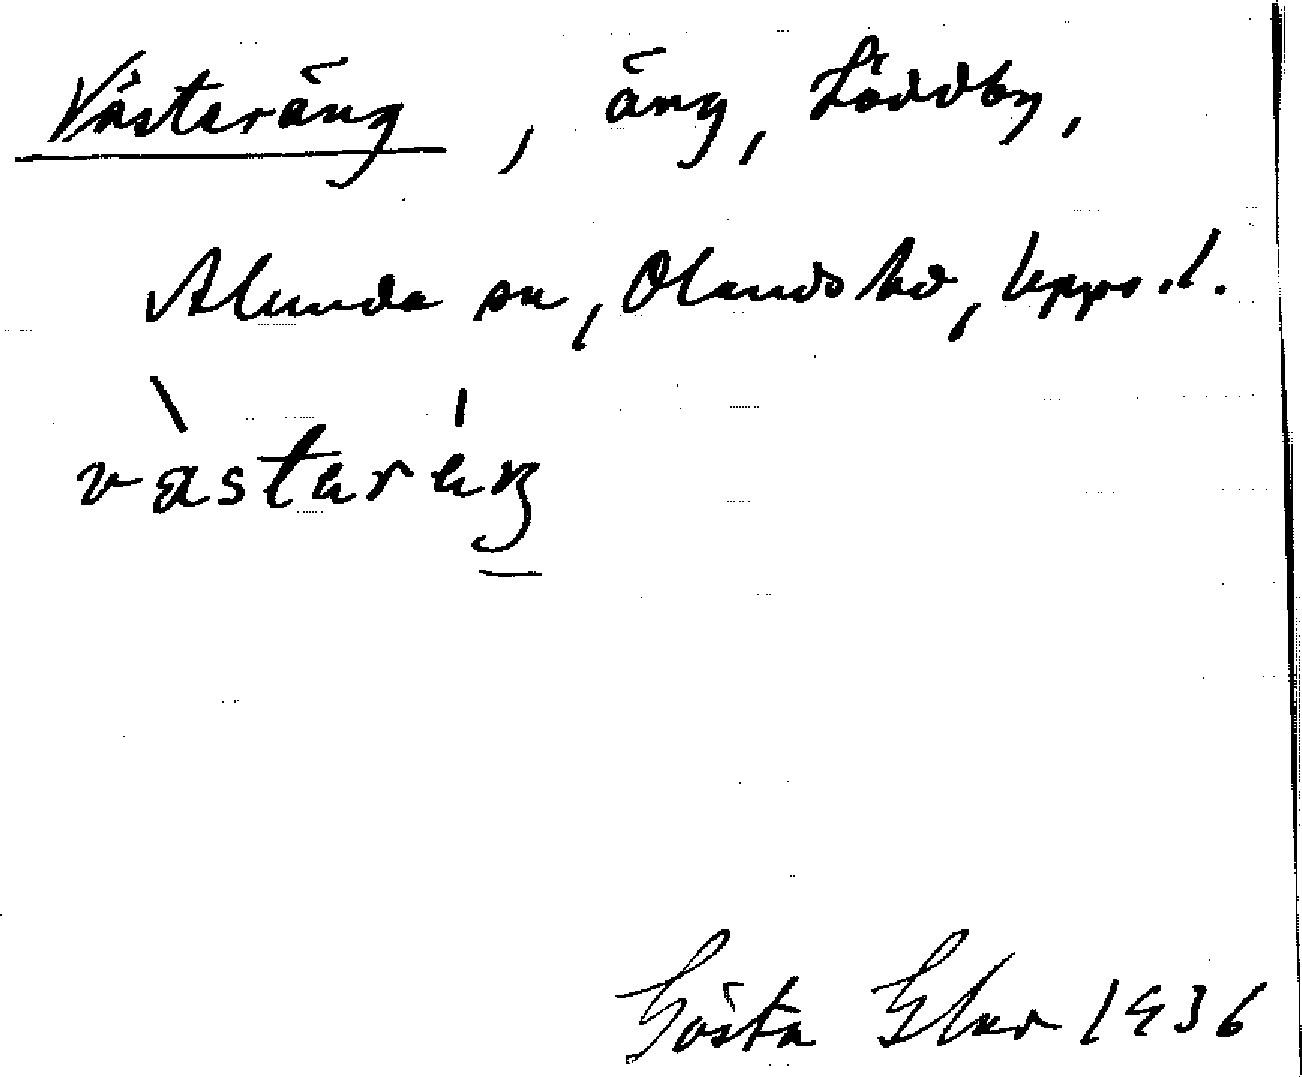 Västeräng, äng, Löddby,
Alunda sn, Olands hd, Upps. l.
västeräŋ
Gösta Eber 1936